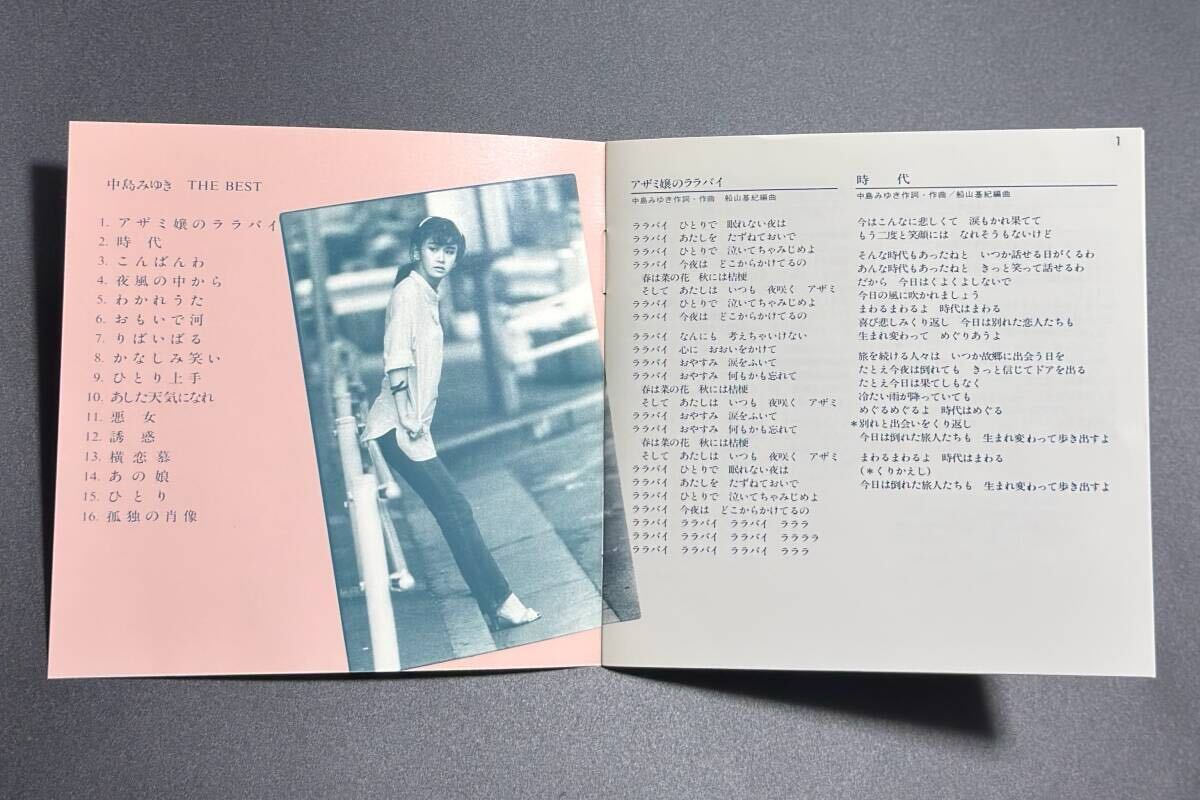 中島みゆき THE BEST
1. アザミ嬢のララバイ
2. 時代
3. こんばんわ
4. 夜風の中から
5. わかれうた
6. おもいで河
7. りばいばる
8. かなしみ笑い
9. ひとり上手
10. あした天気になれ
11. 悪女
12. 誘惑
13. 横恋慕
14. あの娘
15. ひとり
16. 孤独の肖像
1
アザミ嬢のララバイ
中島みゆき作詞・作曲 船山基紀編曲
ララバイ ひとりで 眠れない夜は
ララバイ あたしを たずねておいで
ララバイ ひとりで 泣いてちゃみじめよ
ララバイ 今夜は どこからかけてるの
春は菜の花 秋には桔梗
そして あたしは いつも 夜咲く アザミ
ララバイ ひとりで 泣いてちゃみじめよ
ララバイ 今夜は どこからかけてるの
ララバイ なんにも 考えちゃいけない
ララバイ 心に おおいをかけて
ララバイ おやすみ 涙をふいて
ララバイ おやすみ 何もかも忘れて
春は菜の花 秋には桔梗
そして あたしは いつも 夜咲く アザミ
ララバイ おやすみ 涙をふいて
ララバイ おやすみ 何もかも忘れて
春は菜の花 秋には桔梗
そして あたしは いつも 夜咲く アザミ
ララバイ ひとりで 眠れない夜は
ララバイ あたしを たずねておいで
ララバイ ひとりで 泣いてちゃみじめよ
ララバイ 今夜は どこからかけてるの
ララバイ ララバイ ララバイ ラララ
ララバイ ララバイ ララバイ ララララ
ララバイ ララバイ ララバイ ラララ
時代
中島みゆき作詞・作曲/船山基紀編曲
今はこんなに悲しくて 涙もかれ果てて
もう二度と笑顔には なれそうもないけど
そんな時代もあったねと いつか話せる日がくるわ
あんな時代もあったねと きっと笑って話せるわ
だから 今日はくよくよしないで
今日の風に吹かれましょう
まわるまわるよ 時代はまわる
喜び悲しみくり返し 今日は別れた恋人たちも
生まれ変わって めぐりあうよ
旅を続ける人々は いつか故郷に出会う日を
たとえ今夜は倒れても きっと信じてドアを出る
たとえ今日は果てしもなく
冷たい雨が降っていても
めぐるめぐるよ 時代はめぐる
*別れと出会いをくり返し
今日は倒れた旅人たちも 生まれ変わって歩き出すよ
まわるまわるよ 時代はまわる
(*くりかえし)
今日は倒れた旅人たちも 生まれ変わって歩き出すよ